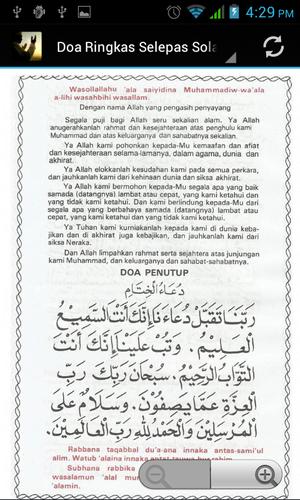 4:29 PM
Doa Ringkas Selepas Sola
Wasollallahu 'ala saiyidina Muhammadiw-wa'ala
a-lihi wasahbihi wasallam.
Dengan nama Allah yang pengasih penyayang
Segala puji bagi Allah seru sekalian alam. Ya Allah
anugerahkanlah rahmat dan kesejahteraan atas penghulu kami
Muhammad dan atas keluarganya dan sahabatnya sekalian.
Ya Allah kami pohonkan kepada-Mu kemaafan dan afiat
dan kesejahteraan selama-lamanya, dalam agama, dunia dan
akhirat.
Ya Allah elokkanlah kesudahan kami pada semua perkara,
dan jauhkanlah kami dari kehinaan dunia dan siksa akhirat.
Ya Allah kami bermohon kepada-Mu segala apa yang baik
samada (datangnya) lambat atau cepat, yang kami ketahui dan
yang tidak kami ketahui. Dan kami berlindung kepada-Mu dari
segala apa yang berbahaya samada (datangnya) lambat atau
cepat, yang kami ketahui dan yang tidak kami ketahui.
Ya Tuhan kami kurniakanlah kepada kami di dunia keba-
jikan dan di akhirat juga kebajikan, dan jauhkanlah kami dari
siksa Neraka.
Dan Allah limpahkan rahmat serta sejahtera atas junjungan
kami Muhammad, dan keluarganya dan sahabat-sahabatnya.
DOA PENUTUP
دُعَاءُ الْخِتَامِ
رَبَّنَا تَقَبَّلْ دُعَاءَنَا إِنَّكَ أَنْتَ السَّمِيعُ
الْعَلِيمُ . وَتُبْ عَلَيْنَا إِنَّكَ أَنْتَ
التَّوَّابُ الرَّحِيمُ . سُبْحَانَ رَبِّكَ رَبِّ
الْعِزَّةِ عَمَّا يَصِفُونَ . وَسَلَامٌ عَلَى
الْمُرْسَلِينَ وَالْحَمْدُ لِلَّهِ رَبِّ الْعَالَمِينَ .
Rabbana taqabbal du'a-ana innaka antas-sami'ul
alim. Watub 'alaina innaka
Subhana rabbika
wasalamun 'alal